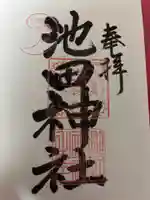 奉拝
池田神社